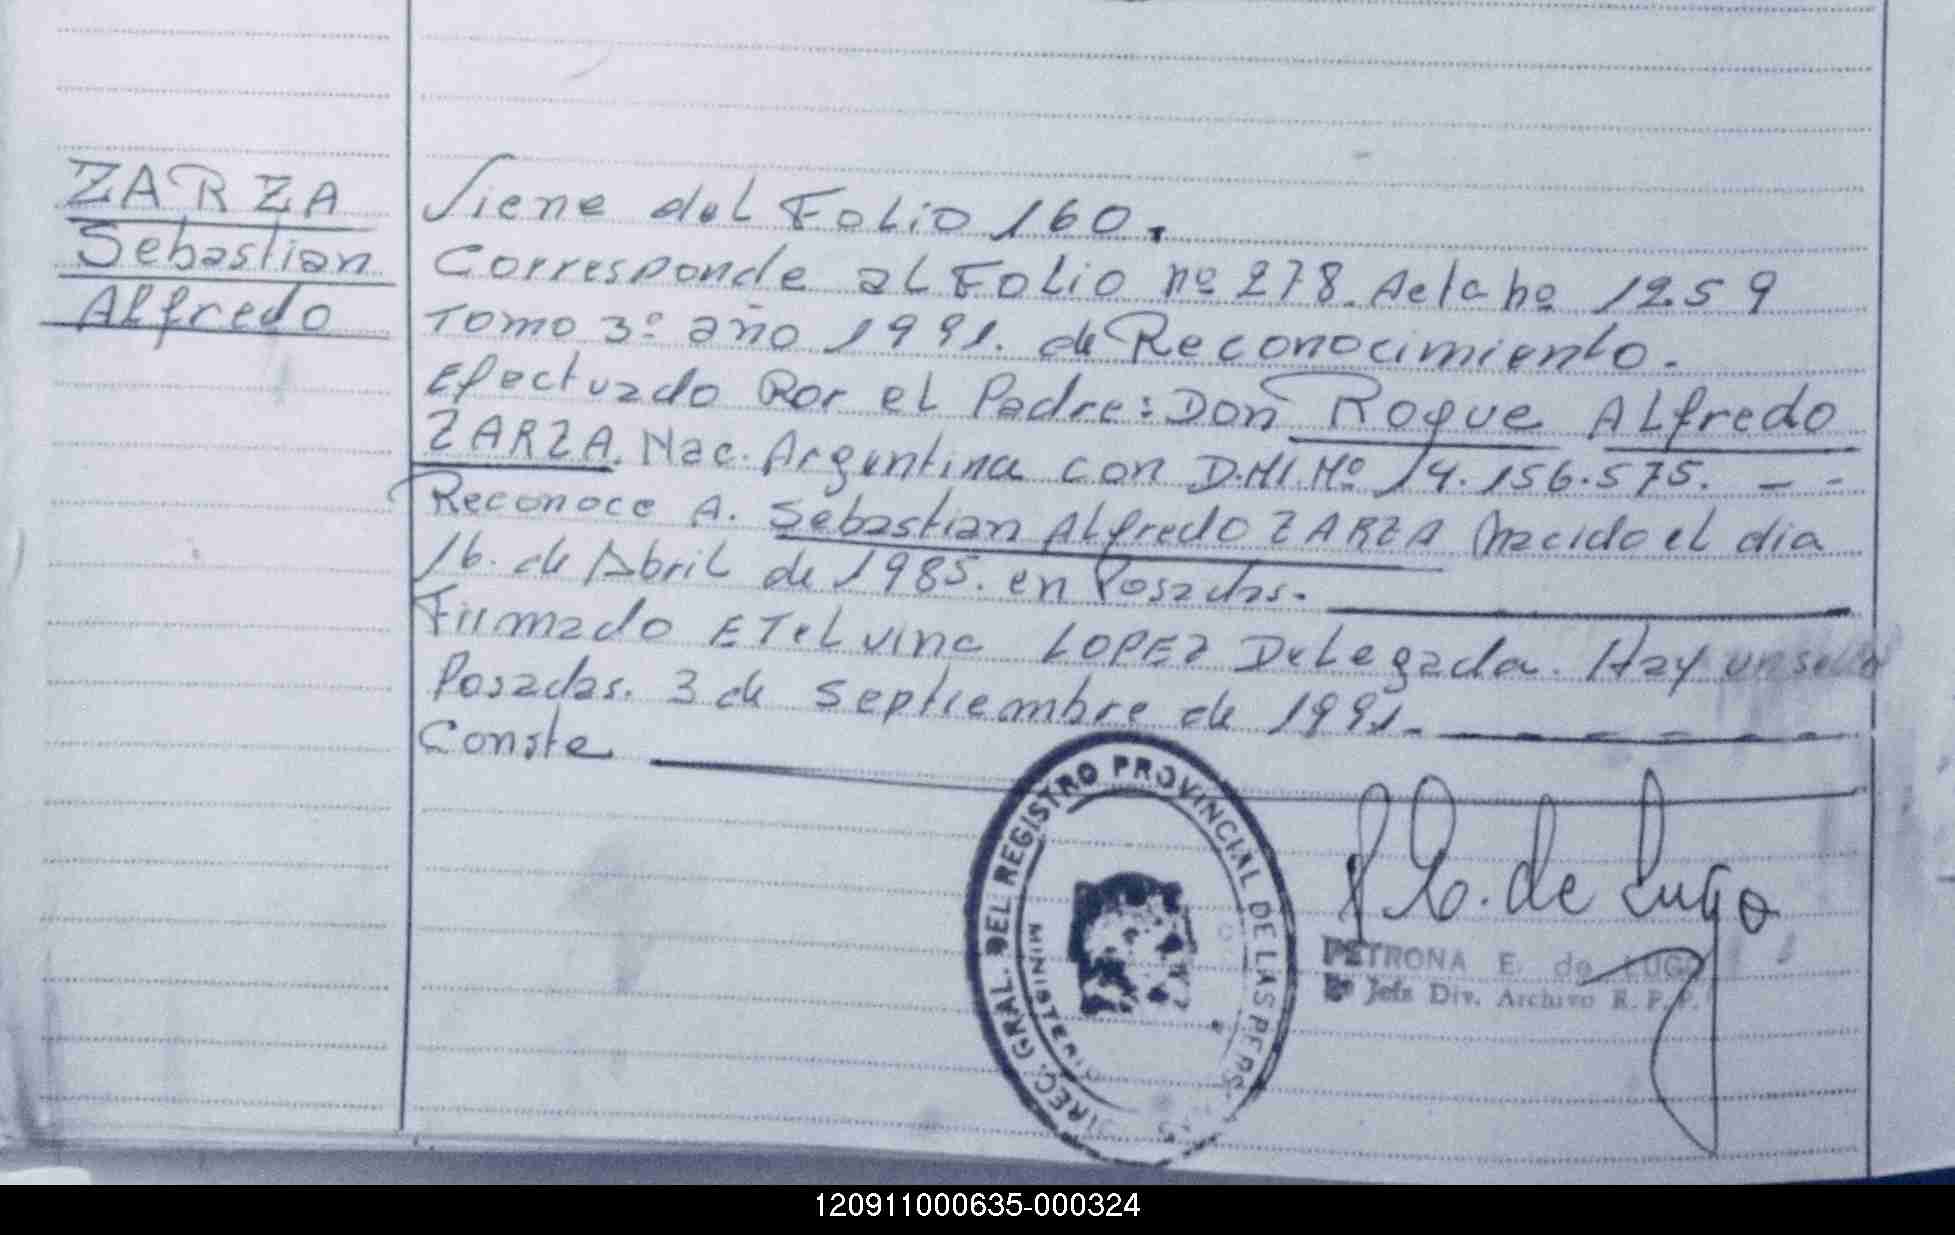 ZARZA
Sebastian
Alfredo
Viene del Folio 160.
Corresponde al Folio nº 278. Acta nº 1259
Tomo 3º año 1991. de Reconocimiento.
Efectuado Por el Padre: Don Roque Alfredo
ZARZA. Nac. Argentina con D.N.I. Nº 14.156.575. - -
Reconoce A. Sebastian Alfredo ZARZA Nacido el dia
16. de Abril de 1985. en Posadas.
Firmado ETelvina LOPEZ Delegada. Hay un sello
Posadas. 3 de Septiembre de 1991.
Conste
DIREC. GRAL. DEL REGISTRO PROVINCIAL DE LAS PERS
MINISTERIO
P. E. de Lugo
PETRONA E. de LUGO
Jefe Div. Archivo R. P. P.
120911000635-000324